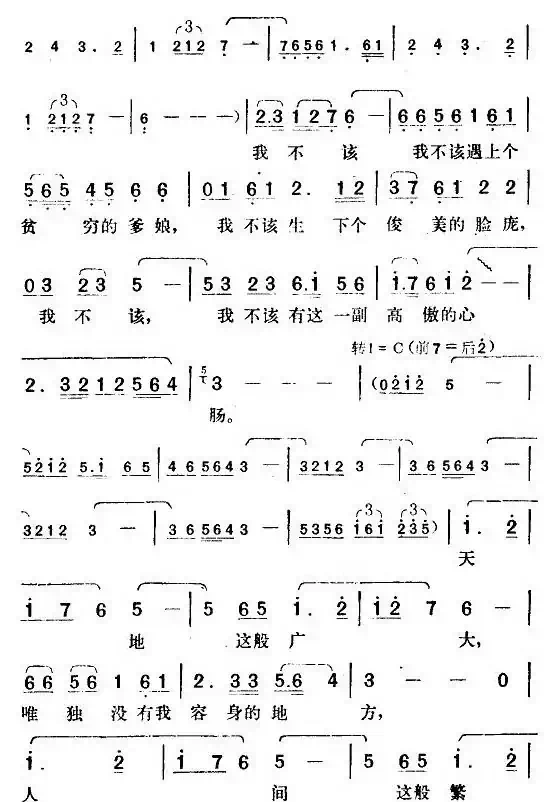 2 4 3. 2 | 1 212 7 - | 76561. 61 | 2 4 3. 2 |
1 2127 - | 6 - - -) | 2.3 1276 - | 66561 61 |
我 不 该 我不该遇上个
565 45 6 6 | 01 61 2. 12 | 37 61 2 2 |
贫 穷的爹娘, 我不该生 下个 俊 美的脸庞,
03 23 5 - | 53 23 6.i 56 | i.7 6i 2 - - |
我 不 该, 我不该有这一副 高 傲的心
转1=C(前7=后2)
2. 3212564 | 3 - - - | (02i2 5 - |
肠。
52i2 5.i 65 | 46 5643 - | 3212 3 - | 36 5643 - |
3212 3 - | 36 5643 - | 5356 i6i 235) | i. 2 |
天
i 7 6 5 - | 5 65 i. 2 | i2 7 6 - |
地 这般广 大,
66 56 1 61 | 2. 33 5.6 4 | 3 - - 0 |
唯 独 没有我 容 身的地 方,
i. 2 | i 7 6 5 - | 5 65 i. 2 |
人 间 这般繁